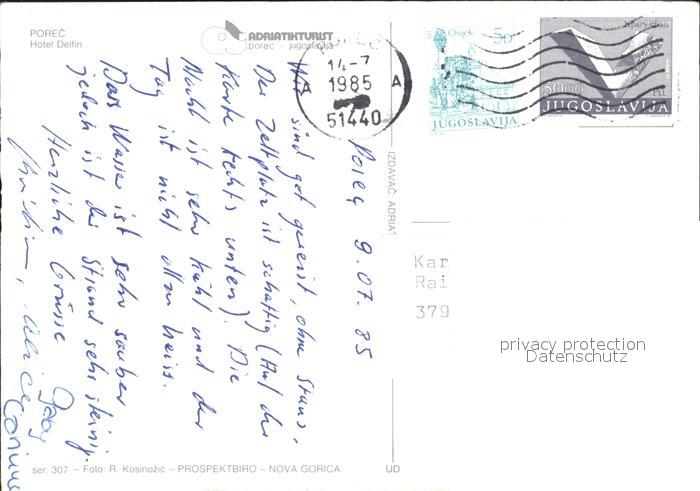 POREČ
Hotel Delfin
ADRIATIKTURIST
poreč - jugoslavija
14-7
1985
A A
51440
Osijek
5.-
JUGOSLAVIJA
50.00
JUGOSLAVIJA
Poreč 9.07.85
Wir sind gut gereist, ohne Staus.
Der Zeltplatz ist schattig (Auf der
Karte rechts unten). Die
Nacht ist sehr kühl und der
Tag ist nicht allzu heiss.
Das Wasser ist sehr sauber
jedoch ist der Strand sehr steinig.
Herzliche Grüsse
Gaby
Christian, Alice
Corinne
IZDAVAČ ADRIAT
Kar
Rai
379
privacy protection
Datenschutz
ser. 307 – Foto: R. Kosinožić – PROSPEKTBIRO – NOVA GORICA
UD